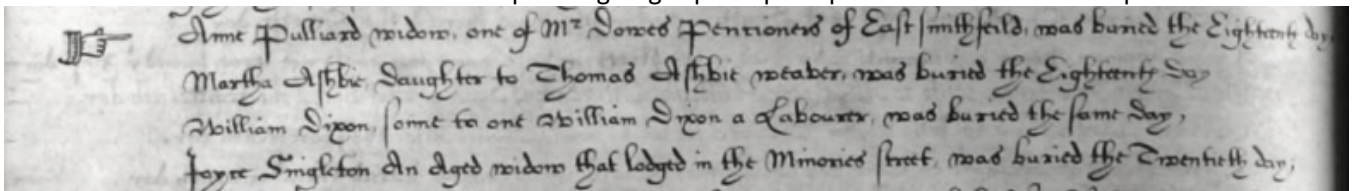 Anne Pulliard widow, one of Mr Dowes Pentioners of East smithfeild, was buried the Eighteenth day,
Martha Ashbie Daughter to Thomas Ashbie weaver, was buried the Eighteenth Day
William Dixon, sonne to one William Dixon a Labourer, was buried the same Day,
Joyce Singleton An Aged widow that lodged in the Minories street, was buried the Twentieth day,